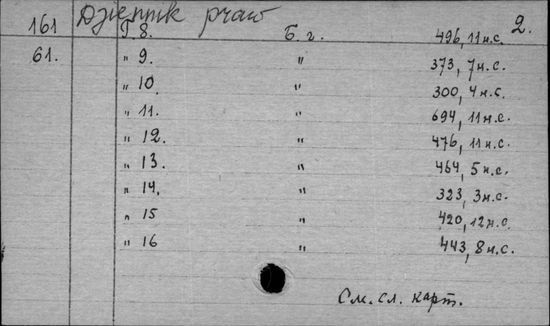 Dziennik praw 2.
161 Т 8. Б. г. 496, 11 н.с.
61. " 9. " 373, 7 н.с.
" 10. " 300, 4 н.с.
" 11. " 694, 11 н.с.
" 12. " 476, 11 н.с.
" 13. " 464, 5 н.с.
" 14. " 323, 3 н.с.
" 15 " 420, 12 н.с.
" 16 " 443, 8 н.с.
См. сл. карт.